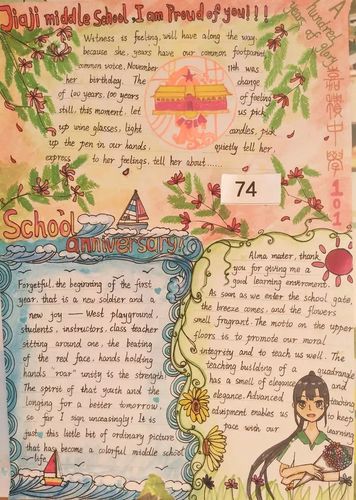 Jiaji middle School, I am Proud of you!!!
A hundred years of glory
嘉積中學
101
Witness is feeling, will have along the way
because she, years have our common footprint,
common voice, November 11th was
her birthday. The change
of 100 years, 100 years of feeling
still, this moment, let us pick
up wine glasses, light candles, pick
up the pen in our hands, quietly tell her,
express to her feelings, tell her about......
74
School
anniversary!
Forgetful, the beginning of the first
year, that is a new soldier and a
new joy — West playground,
students, instructors, class teacher
sitting around one, the beating
of the red face, hands holding
hands "roar" unity is the strength!
The spirit of that youth and the
longing for a better tomorrow,
so far I sign unceasingly! It is
just this little bit of ordinary picture
that has become a colorful middle school
life.
Alma mater, thank
you for giving me a
good learning enviroment.
As soon as we enter the school gate,
the breeze comes, and the flowers
smell fragrant. The motto on the upper
floors is to promote our moral
integrity and to teach us well. The
teaching building of a quadrangle
has a smell of elegance and
elegance. Advanced teaching
equipment enables us to keep
pace with our learning